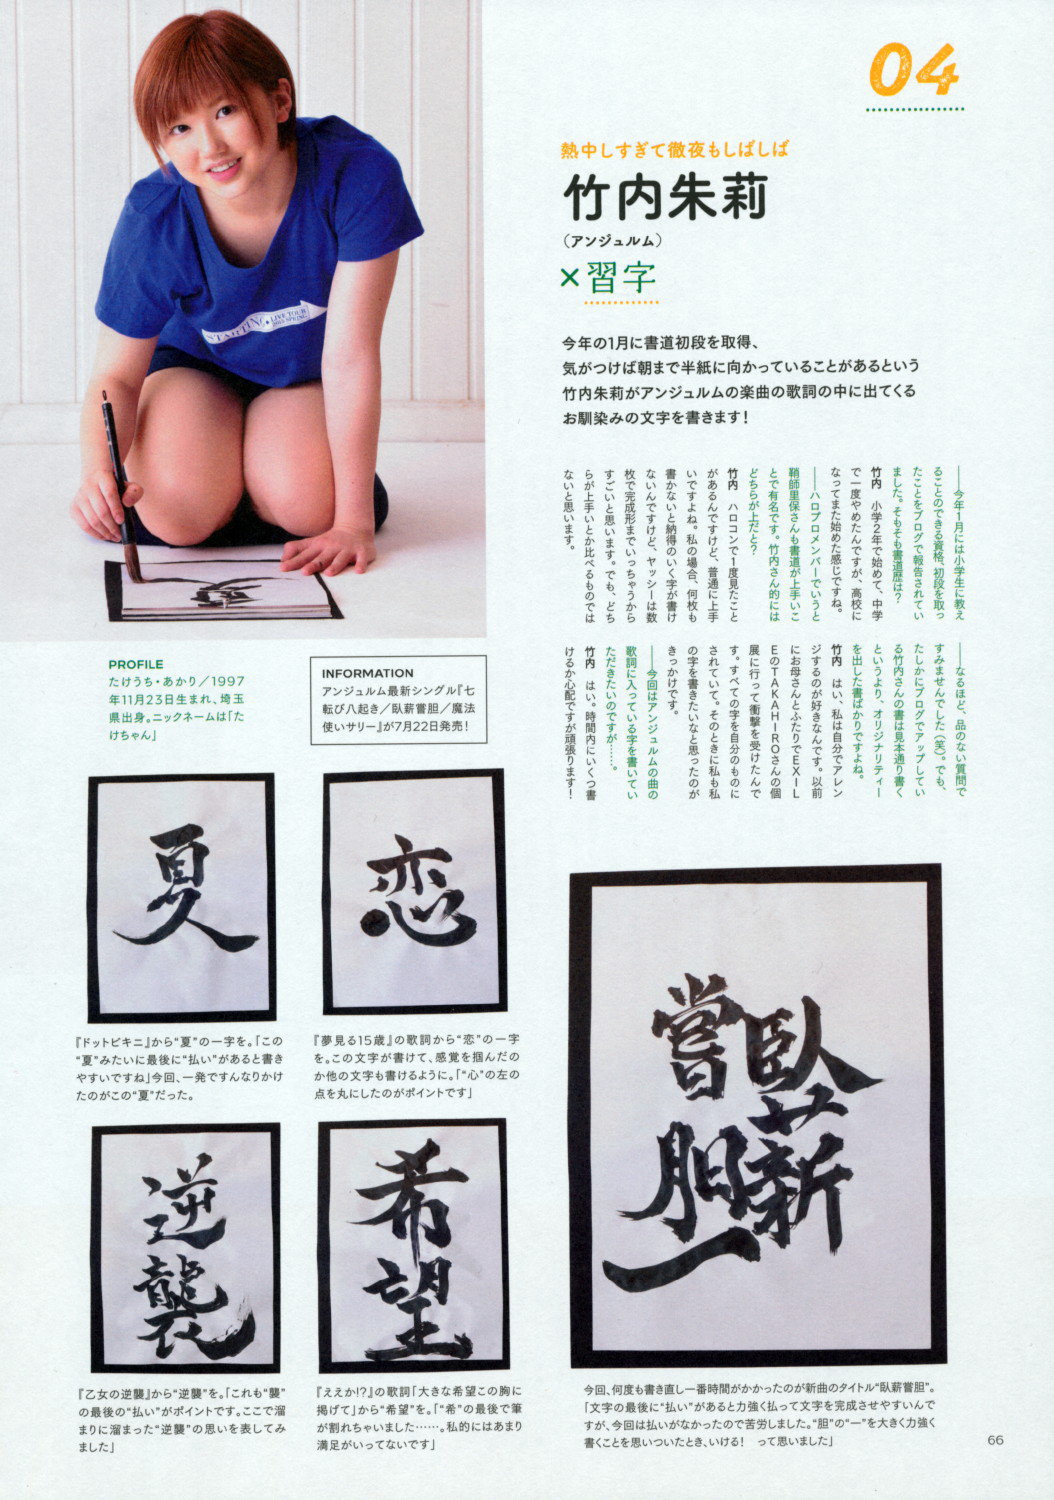 04
熱中しすぎて徹夜もしばしば
竹内朱莉
（アンジュルム）
×習字
今年の1月に書道初段を取得、
気がつけば朝まで半紙に向かっていることがあるという
竹内朱莉がアンジュルムの楽曲の歌詞の中に出てくる
お馴染みの文字を書きます！
――今年1月には小学生に教え
ることのできる資格、初段を取っ
たことをブログで報告されてい
ました。そもそも書道歴は？
竹内　小学2年で始めて、中学
で一度やめたんですが、高校に
なってまた始めた感じですね。
――ハロプロメンバーでいうと
鞘師里保さんも書道が上手いこ
とで有名です。竹内さん的には
どちらが上だと？
竹内　ハロコンで1度見たこと
があるんですけど、普通に上手
いですよね。私の場合、何枚も
書かないと納得のいく字が書け
ないんですけど、ヤッシーは数
枚で完成形までいっちゃうから
すごいと思います。でも、どち
らが上手いとか比べるものでは
ないと思います。
――なるほど、品のない質問で
すみませんでした（笑）。でも、
たしかにブログでアップしてい
る竹内さんの書は見本通り書く
というより、オリジナリティー
を出した書ばかりですよね。
竹内　はい、私は自分でアレン
ジするのが好きなんです。以前
にお母さんとふたりでEXIL
EのTAKAHIROさんの個
展に行って衝撃を受けたんで
す。すべての字を自分のものに
されていて。そのときに私も私
の字を書きたいなと思ったのが
きっかけです。
――今回はアンジュルムの曲の
歌詞に入っている字を書いてい
ただきたいのですが……。
竹内　はい。時間内にいくつ書
けるか心配ですが頑張ります！
STARTING LIVE TOUR
2015 SPRING
PROFILE
たけうち・あかり／1997
年11月23日生まれ、埼玉
県出身。ニックネームは「た
けちゃん」
INFORMATION
アンジュルム最新シングル『七
転び八起き／臥薪嘗胆／魔法
使いサリー』が7月22日発売！
夏
『ドットビキニ』から“夏”の一字を。「この
“夏”みたいに最後に“払い”があると書き
やすいですね」今回、一発ですんなりかけ
たのがこの“夏”だった。
恋
『夢見る15歳』の歌詞から“恋”の一字
を。この文字が書けて、感覚を掴んだの
か他の文字も書けるように。「“心”の左の
点を丸にしたのがポイントです」
逆襲
『乙女の逆襲』から“逆襲”を。「これも“襲”
の最後の“払い”がポイントです。ここで溜
まりに溜まった“逆襲”の思いを表してみ
ました」
希望
『ええか!?』の歌詞「大きな希望この胸に
掲げて」から“希望”を。「“希”の最後で筆
が割れちゃいました……。私的にはあまり
満足がいってないです」
臥薪
嘗胆
今回、何度も書き直し一番時間がかかったのが新曲のタイトル“臥薪嘗胆”。
「文字の最後に“払い”があると力強く払って文字を完成させやすいんで
すが、今回は払いがなかったので苦労しました。“胆”の“一”を大きく力強く
書くことを思いついたとき、いける！　って思いました」
66